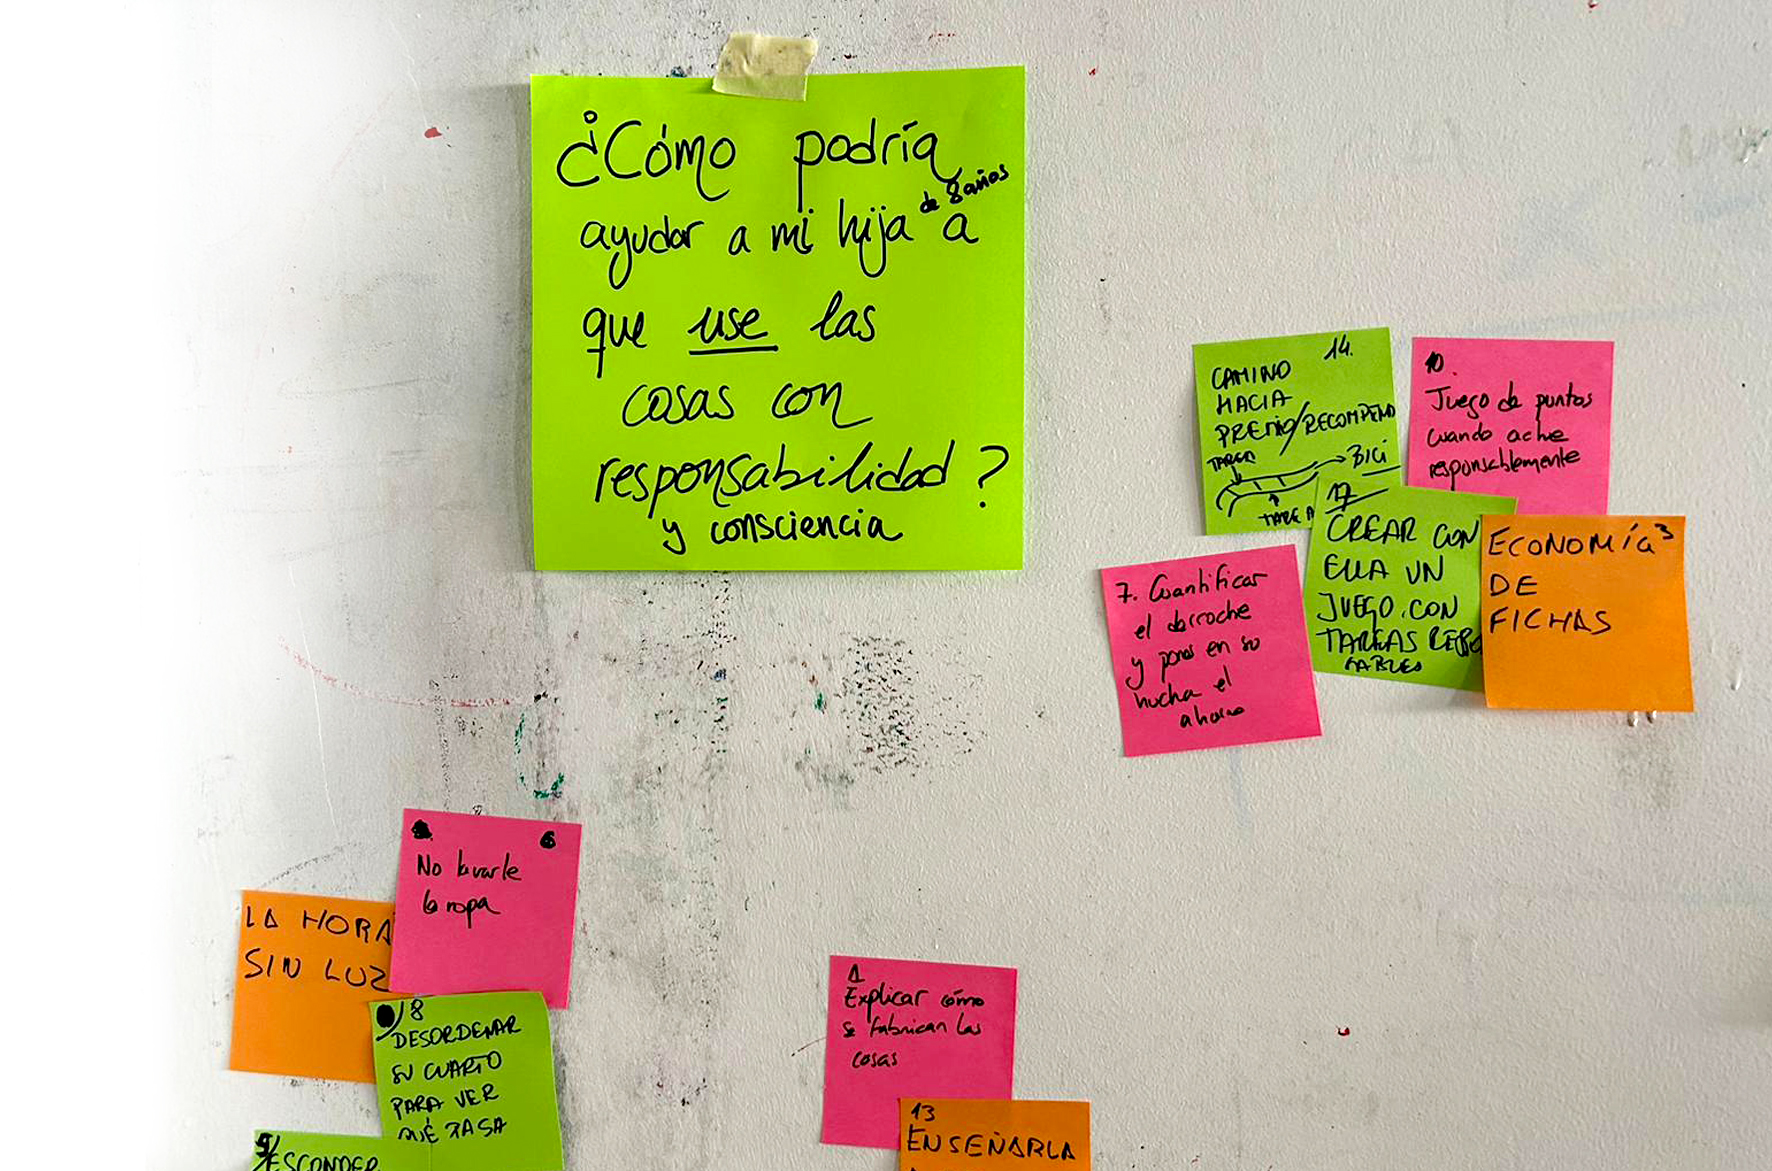 ¿Cómo podría
ayudar a mi hija de 8 años a
que use las
cosas con
responsabilidad?
y consciencia
14.
CAMINO
HACIA
PREMIO/RECOMPEN
TAREA
BICI
TAREA
10.
Juego de puntos
cuando actue
responsablemente
17
CREAR CON
ELLA UN
JUEGO CON
TAREAS RESPO
SABLES
ECONOMÍA 3
DE
FICHAS
7. Cuantificar
el derroche
y poner en su
hucha el
ahorro
6
No lavarle
la ropa
LA HORA
SIN LUZ
8
DESORDENAR
SU CUARTO
PARA VER
QUÉ PASA
ESCONDER
1
Explicar cómo
se fabrican las
cosas
13
ENSEÑARLA